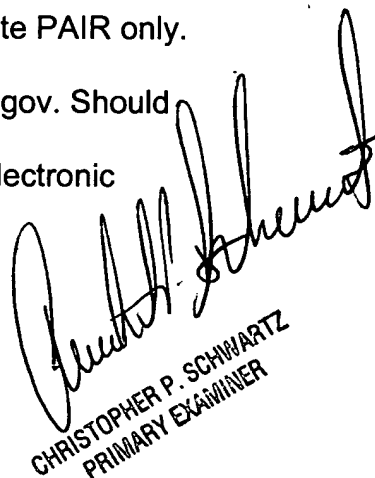 te PAIR only.
gov. Should
lectronic
CHRISTOPHER P. SCHWARTZ
PRIMARY EXAMINER